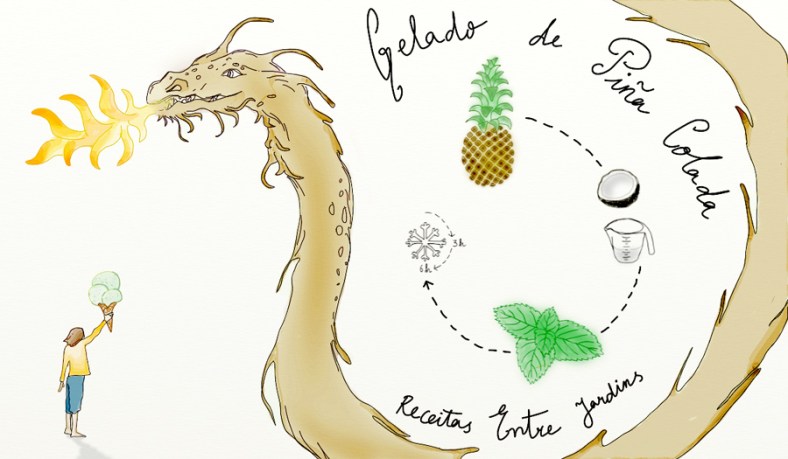 Gelado de Piña Colada
3h
6h
Receitas Entre Jardins